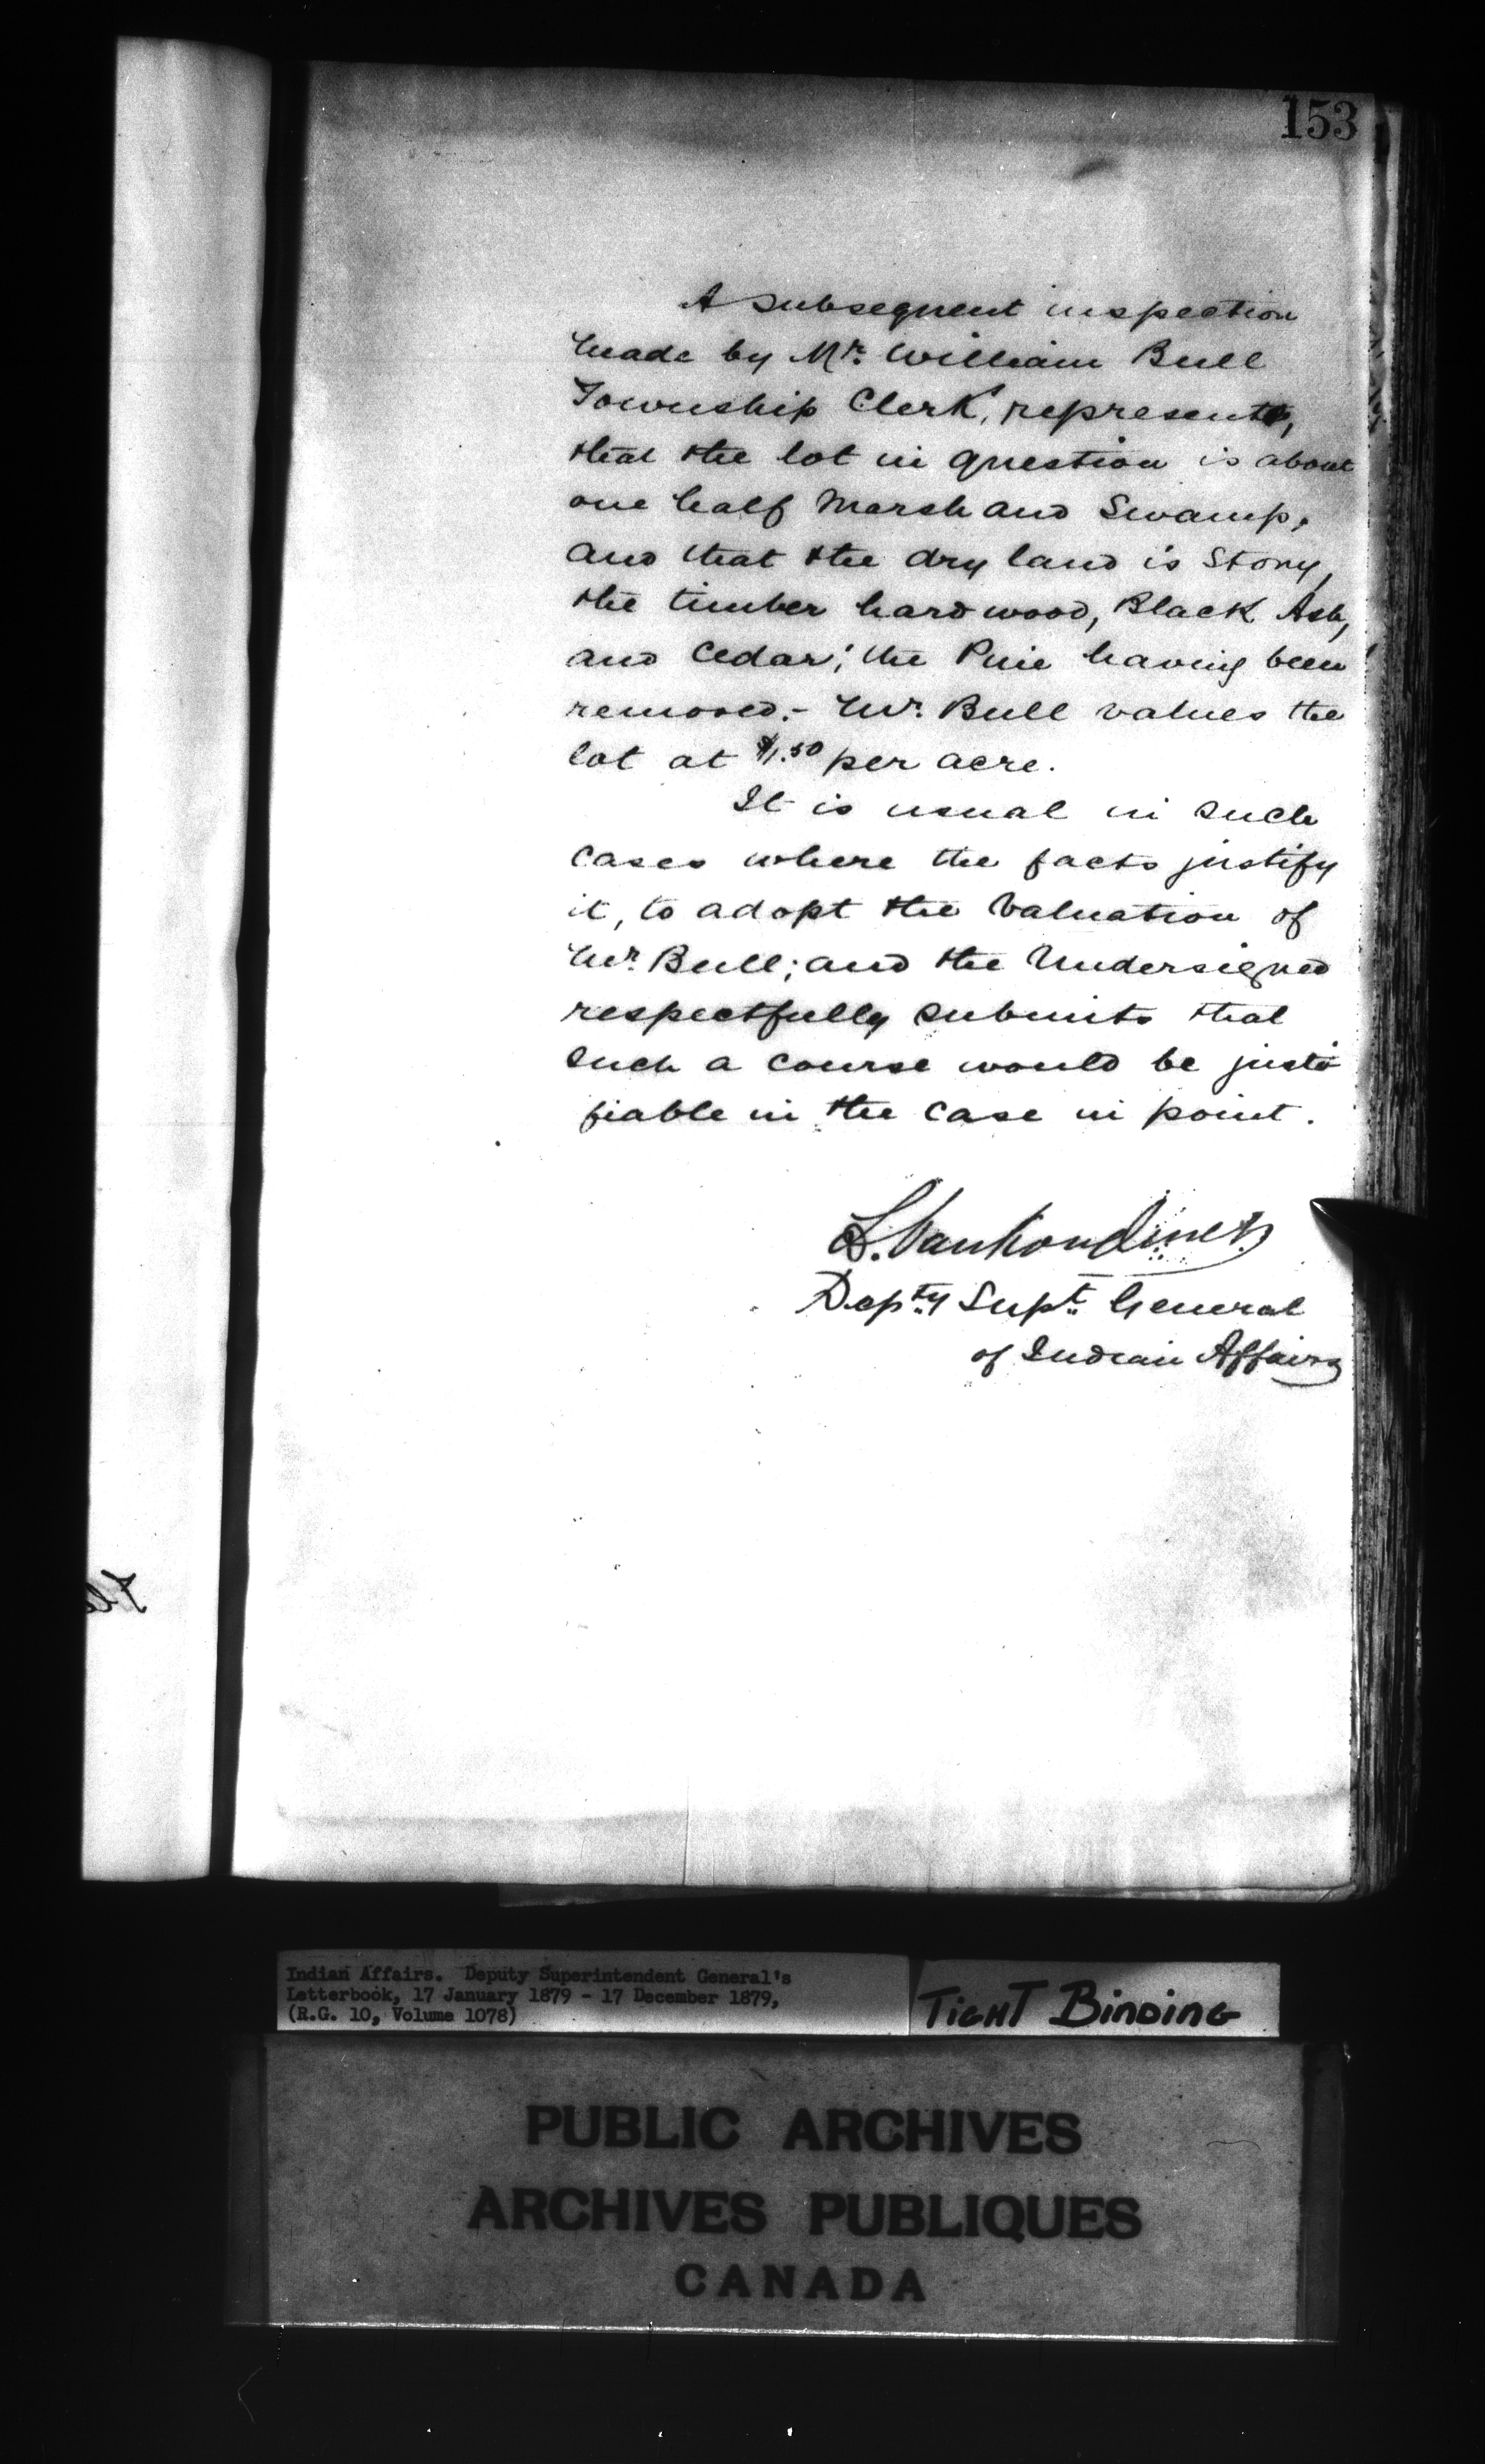 153
A subsequent inspection
made by Mr. William Bull
Township Clerk, represents,
that the lot in question is about
one half Marsh and Swamp,
and that the dry land is Stony,
the timber hard wood, Black Ash,
and Cedar; the Pine having been
removed.- Mr. Bull values the
lot at $1.50 per acre.
It is usual in such
cases where the facts justify
it, to adopt the Valuation of
Mr. Bull; and the Undersigned
respectfully submits that
such a course would be justi
fiable in the case in point.
L. Vankoughnet
Depty Supt General
of Indian Affairs
Indian Affairs. Deputy Superintendent General's
Letterbook, 17 January 1879 - 17 December 1879,
(R.G. 10, Volume 1078)
TIGHT BINDING
PUBLIC ARCHIVES
ARCHIVES PUBLIQUES
CANADA